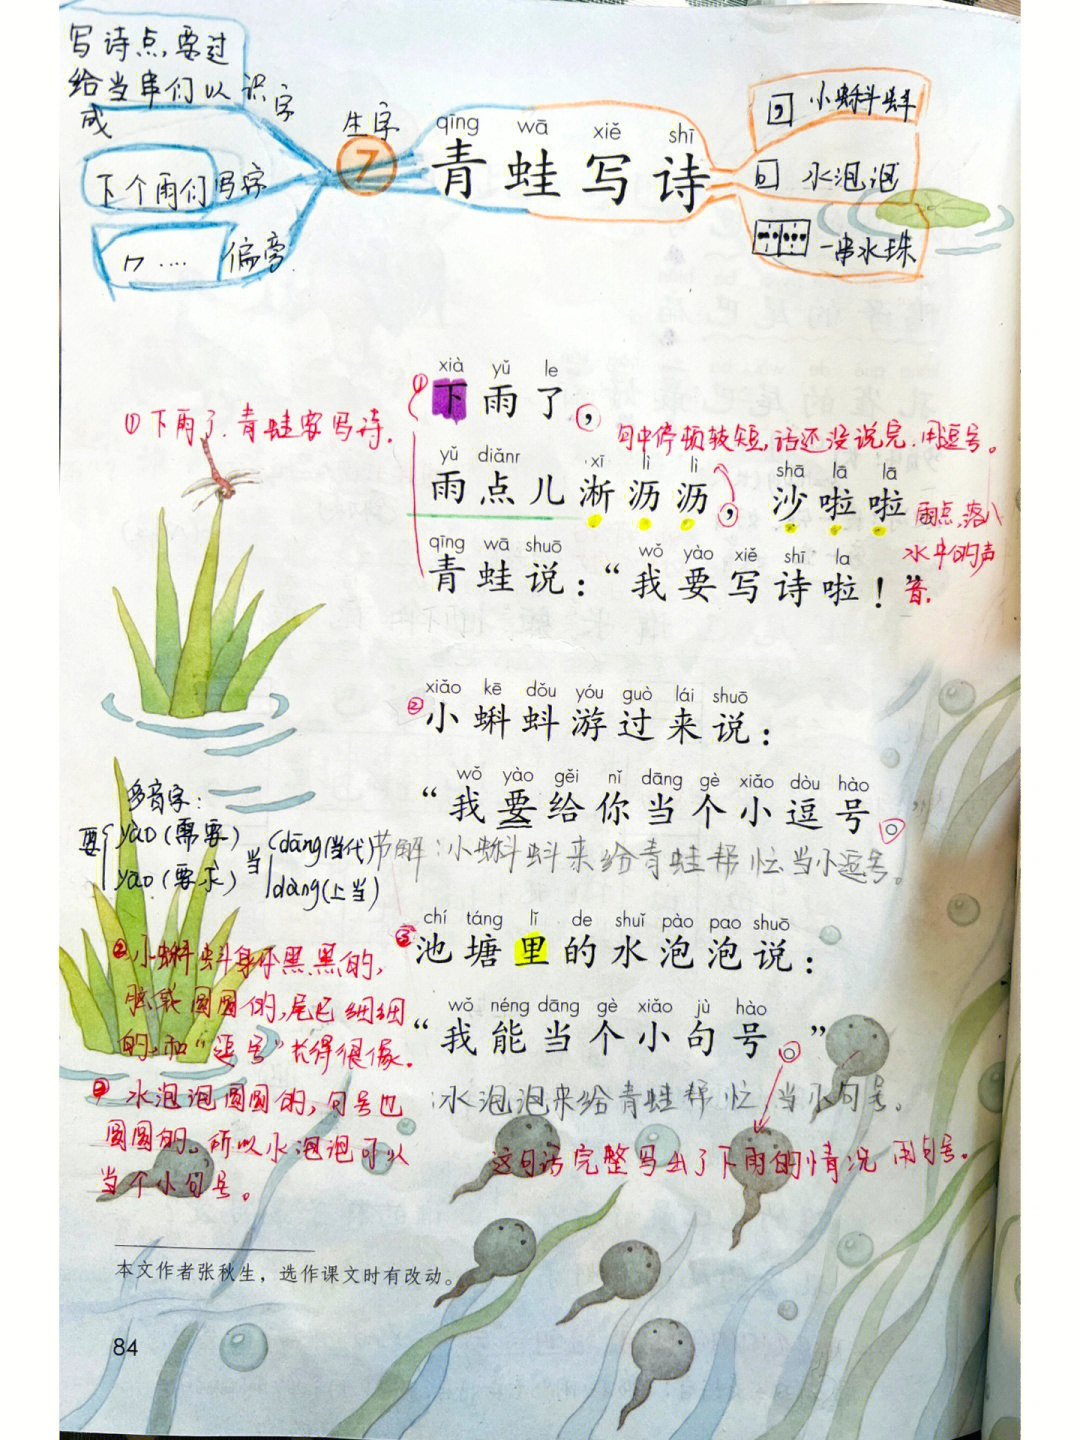 写诗点,要过
给当串们以
成
识字
生字
下个雨们
写字
偏旁
7
qīng wā xiě shī
青蛙写诗
小蝌蚪
水泡泡
一串水珠
xià yǔ le
① 下雨了,
①下雨了.青蛙要写诗.
句中停顿较短,话还没说完.用逗号。
yǔ diǎnr xī lì lì shā lā lā
雨点儿淅沥沥, 沙啦啦
雨点,落入
水中的声
音.
qīng wā shuō wǒ yào xiě shī la
青蛙说:“我要写诗啦!”
xiǎo kē dǒu yóu guò lái shuō
②小蝌蚪游过来说:
wǒ yào gěi nǐ dāng gè xiǎo dòu hào
“我要给你当个小逗号。”
多音字:
要 yāo(需要)
yāo(要求)
当 dāng(当代)
dàng(上当)
:小蝌蚪来给青蛙帮忙当小逗号。
chí táng lǐ de shuǐ pào pao shuō
③池塘里的水泡泡说:
wǒ néng dāng gè xiǎo jù hào
“我能当个小句号。”
②小蝌蚪身体黑黑的,
脑袋圆圆的,尾巴细细
的.和“逗号”长得很像.
:水泡泡来给青蛙帮忙当小句号。
水泡泡圆圆的,句号也
圆圆的。所以水泡泡可以
当个小句号。
这句话完整写出了下雨的情况 用句号。
本文作者张秋生，选作课文时有改动。
84